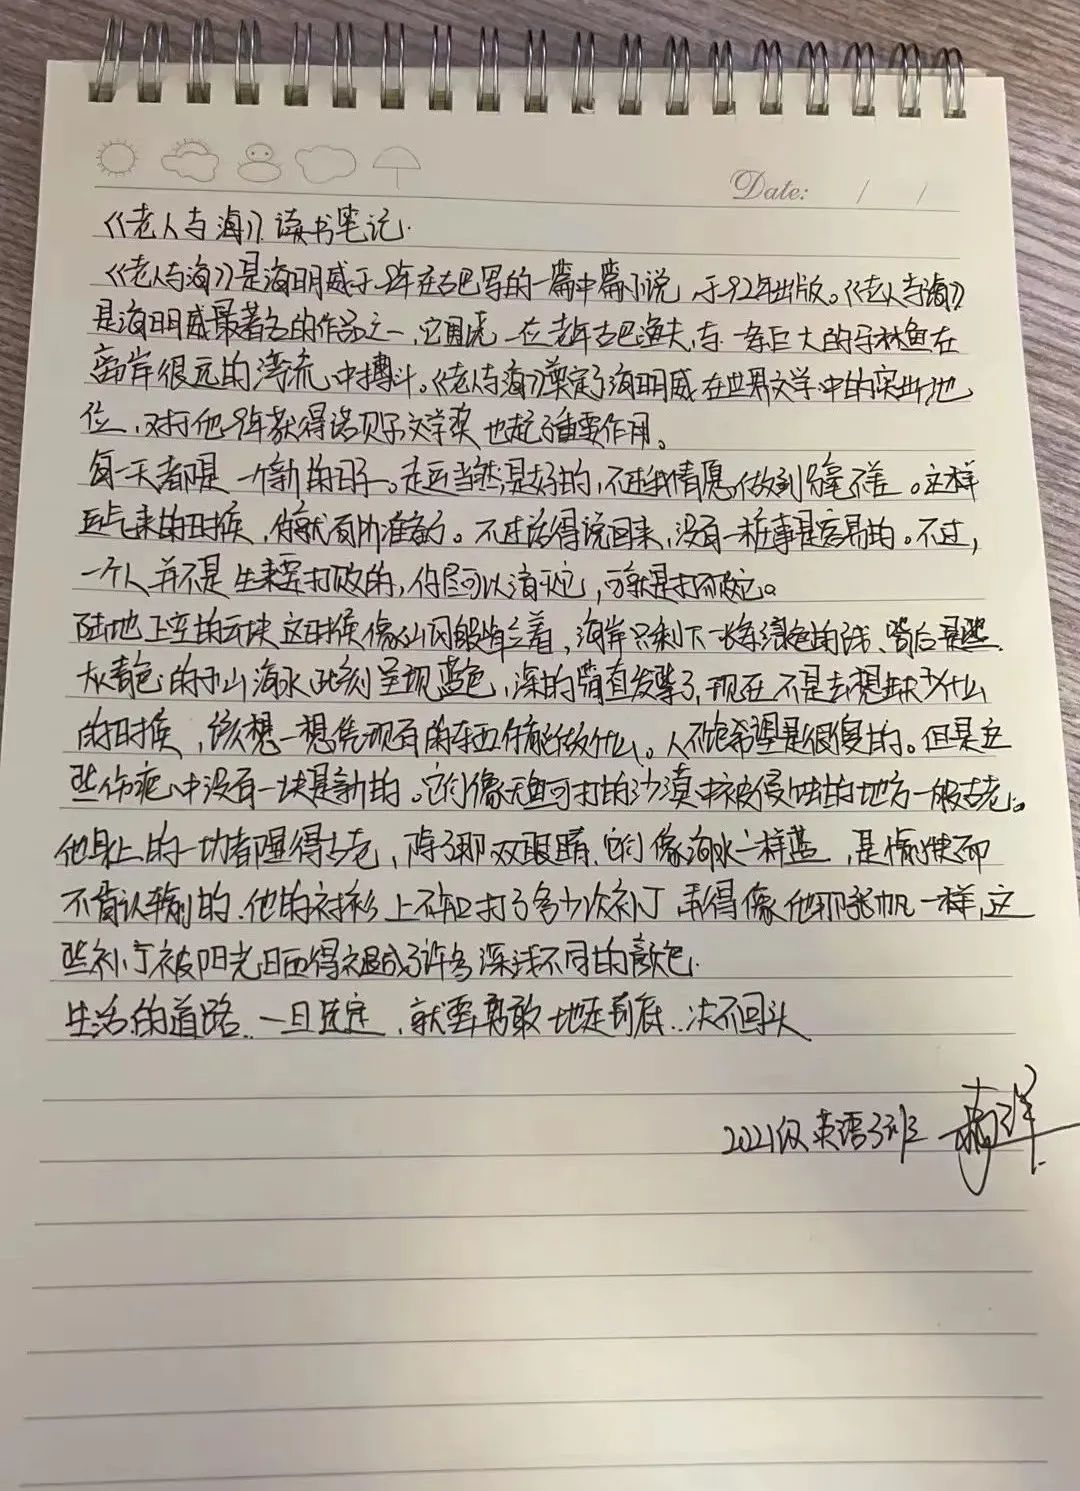 Date: / /
《老人与海》读书笔记.
《老人与海》是海明威于 年在古巴写的一篇中篇小说,于52年出版。《老人与海》
是海明威最著名的作品之一,它围绕一位老年古巴渔夫,与一条巨大的马林鱼在
离岸很远的湾流中搏斗。《老人与海》奠定了海明威在世界文学中的突出地
位,对于他 年获得诺贝尔文学奖也起了重要作用。
每一天都是一个新的日子。走运当然是好的,不过我情愿做到分毫不差。这样
运气来的时候,你就有所准备了。不过话得说回来,没有一桩事是容易的。不过,
一个人并不是生来要打败的,你尽可以消灭它,可就是打不败它。
陆地上空的云块这时候像山冈般耸立着,海岸只剩下一长条绿色的线,背后是些
灰青色的小山海水此刻呈现蓝色,深的简直发紫了,现在不是去想缺少什么
的时候,该想一想凭现有的东西你能做什么。人不抱希望是很傻的。但是这
些伤疤中没有一块是新的。它们像无鱼可打的沙漠中被侵蚀的地方一般古老。
他身上的一切都显得古老,除了那双眼睛,它们像海水一样蓝,是愉快而
不肯认输的.他的衬衫上不知打了多少次补丁,弄得像他那张帆一样,这
些补丁被阳光晒得褪成了许多深浅不同的颜色.
生活的道路..一旦选定,就要勇敢地走到底..决不回头
2021级英语3班